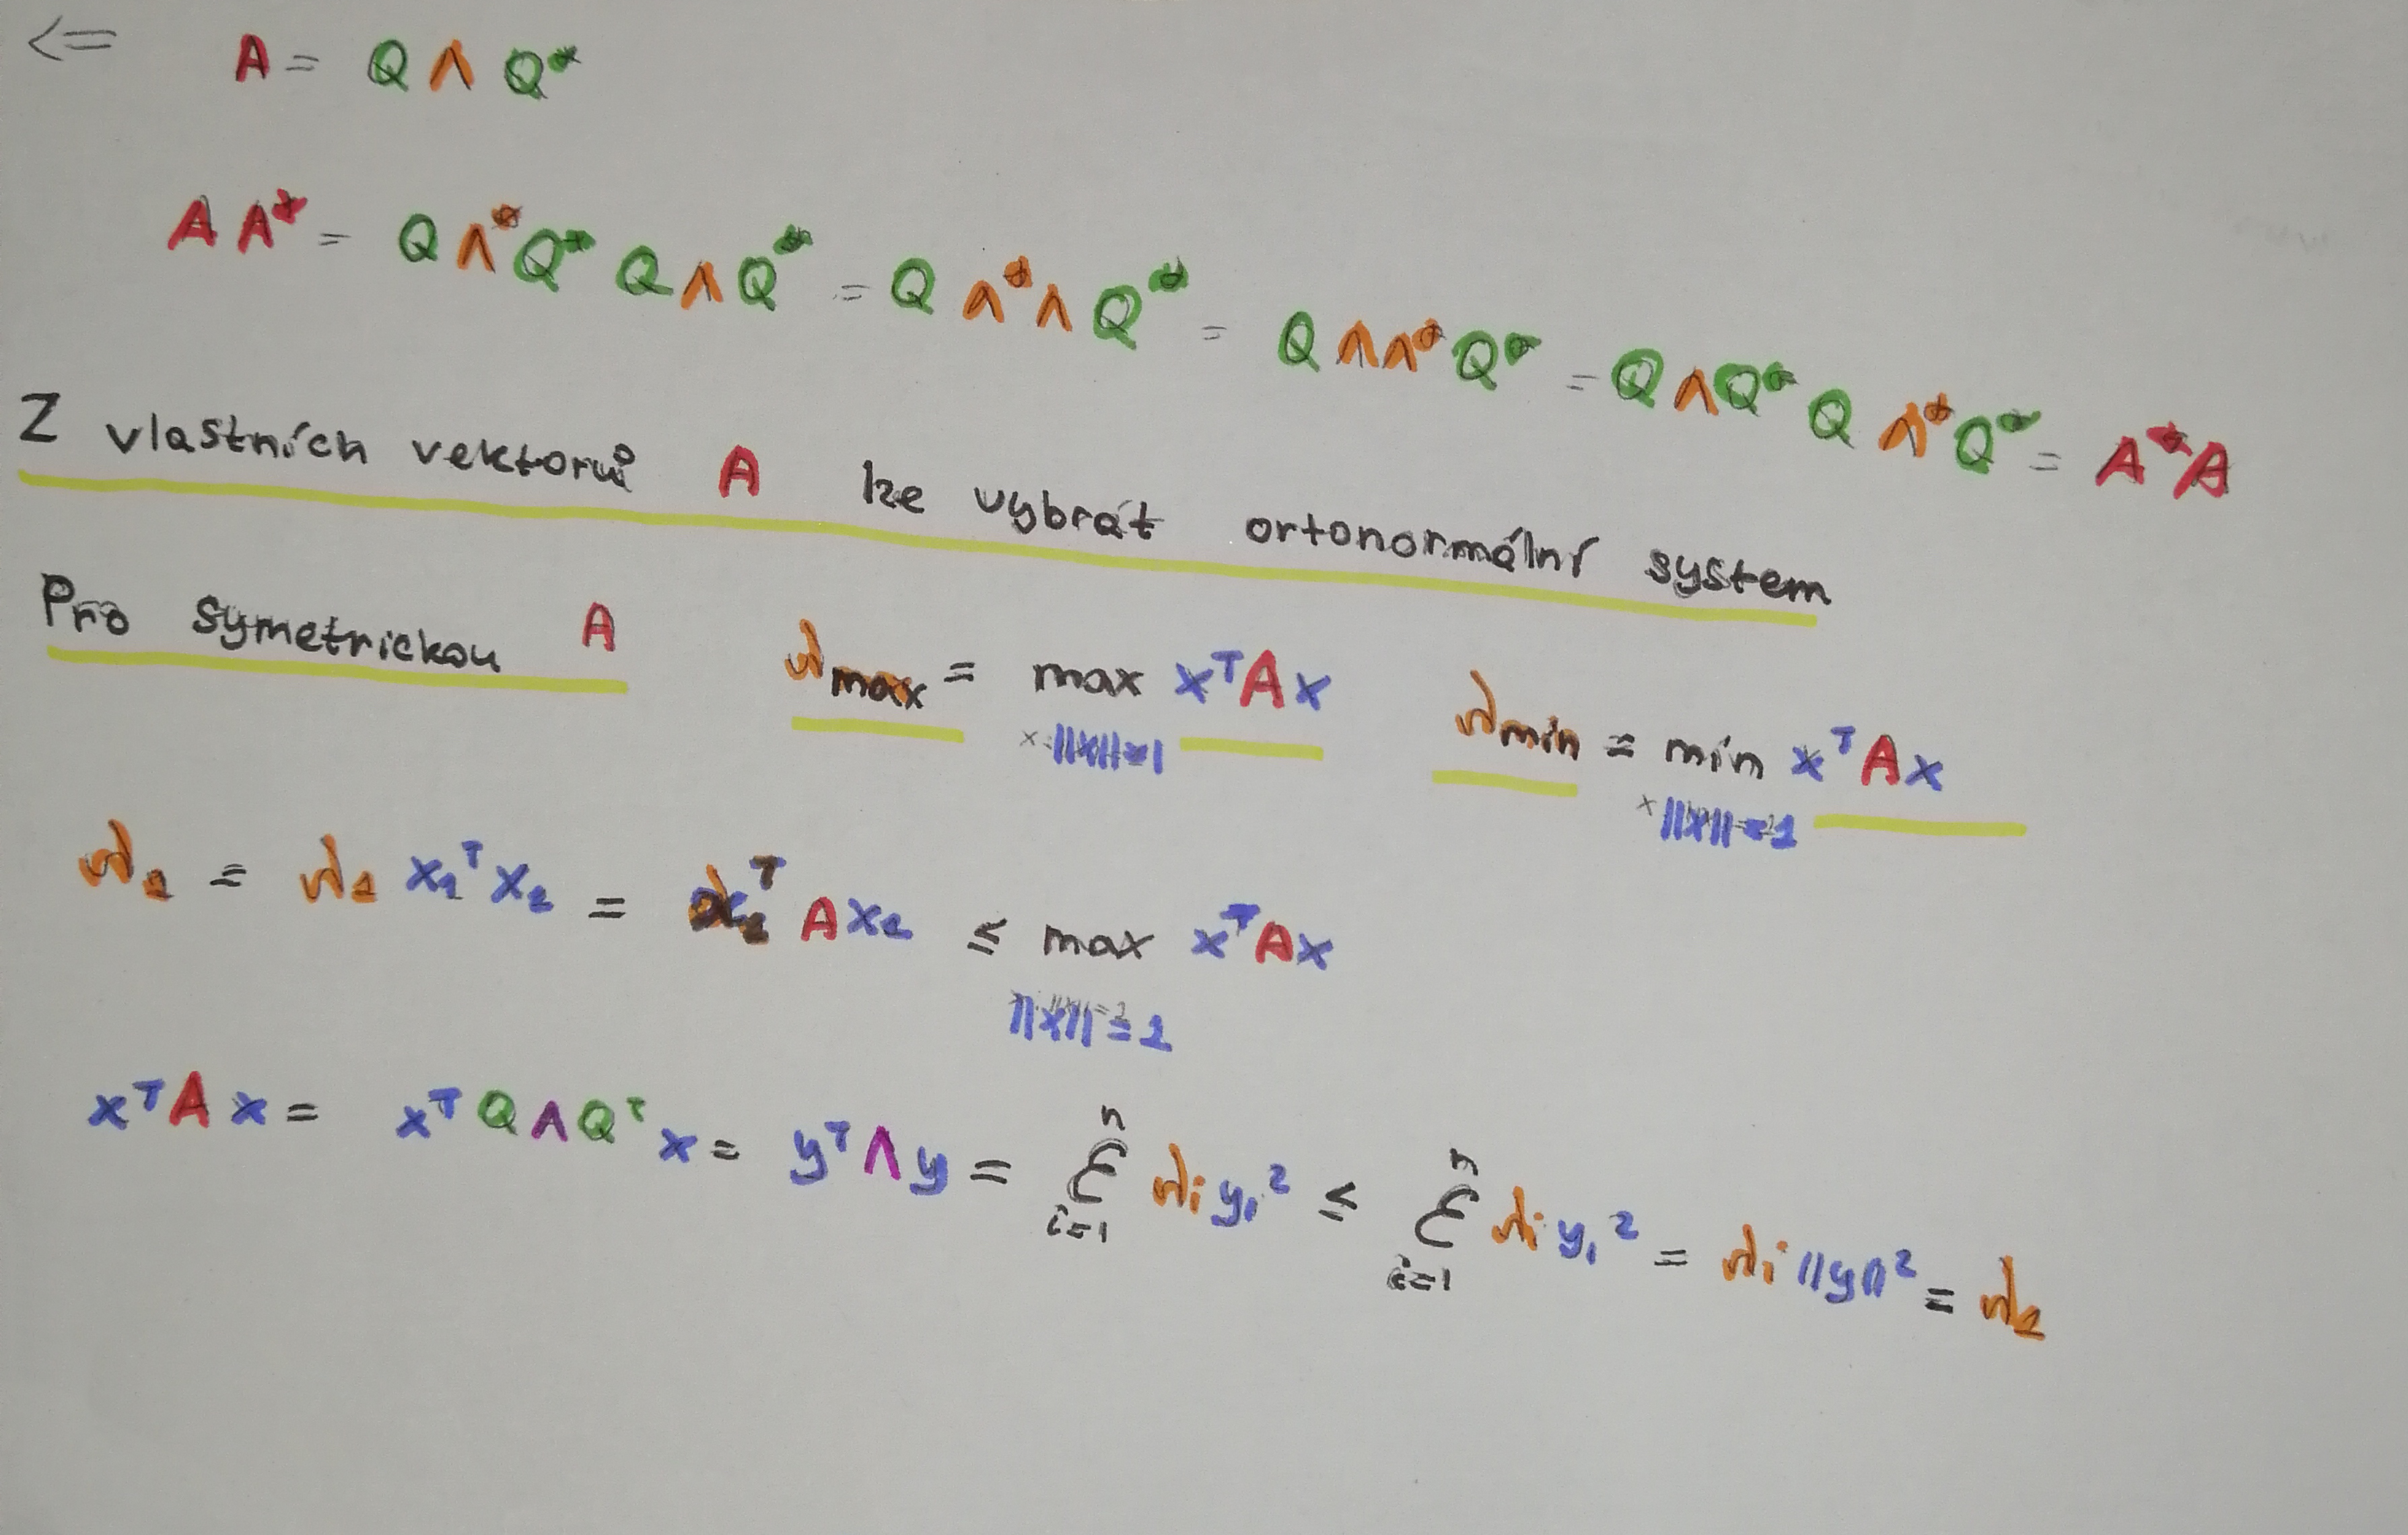 <= A = Q Λ Q*
A A* = Q Λ* Q* Q Λ Q* = Q Λ* Λ Q* = Q Λ Λ* Q* = Q Λ Q* Q Λ* Q* = A* A
Z vlastních vektorů A lze vybrat ortonormální system
Pro symetrickou A λmax = max xᵀAx λmin = min xᵀAx
x:||x||=1 x:||x||=1
λ₁ = λ₁ x₁ᵀ x₁ = x₁ᵀ A x₁ ≤ max xᵀAx
||x||=1
xᵀAx = xᵀQΛQᵀx = yᵀΛy = Σ λᵢ yᵢ² ≤ Σ λᵢ yᵢ² = λᵢ ||y||² = λ₁
n n
i=1 i=1